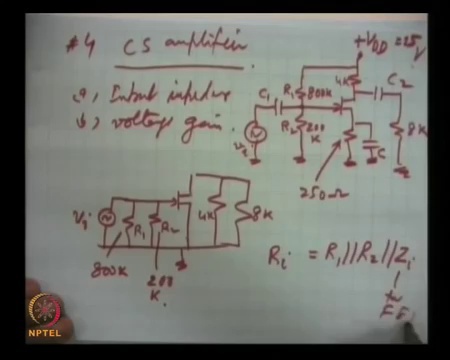 #4 CS amplifier.
a), Input impedance
b), voltage gain.
+VDD = 25V
4K
C2
R1 800K
C1
R2 200K
Vi
8K
C
250Ω
Vi
R1
R2
4K
8K
800K
200K.
Ri = R1 || R2 || Zi
NPTEL